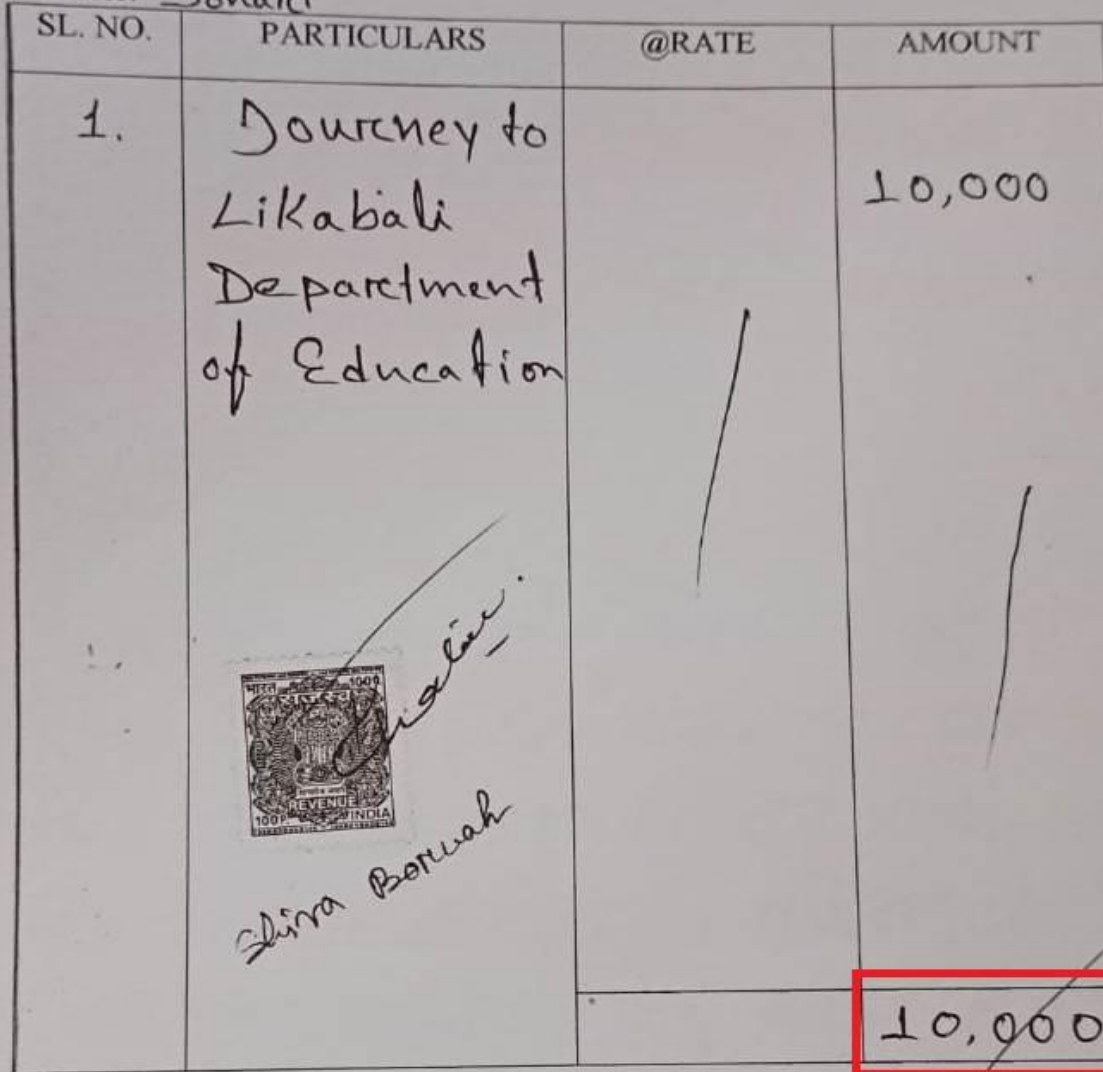 SL. NO. PARTICULARS @RATE AMOUNT
1. Journey to
10,000
Likabali
Department
of Education
भारत 100P
REVENUE
100P. INDIA
Shiva Boruah
10,000